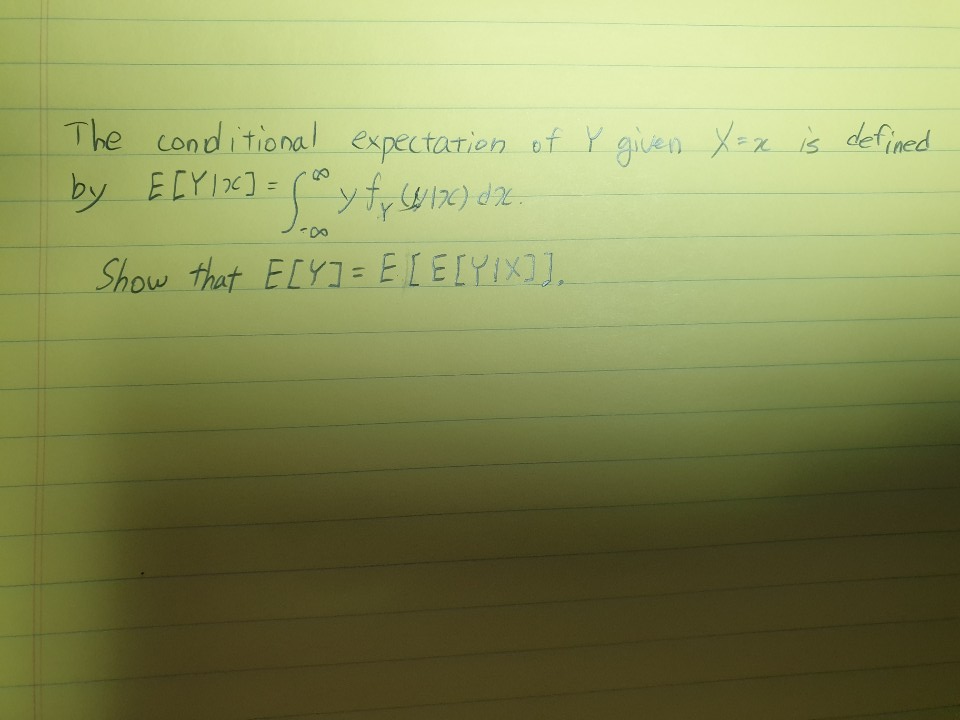 The conditional expectation of Y given X=x is defined
by E[Y|x] = ∫_{-∞}^{∞} y f_Y(y|x) dx.
Show that E[Y] = E[E[Y|X]].